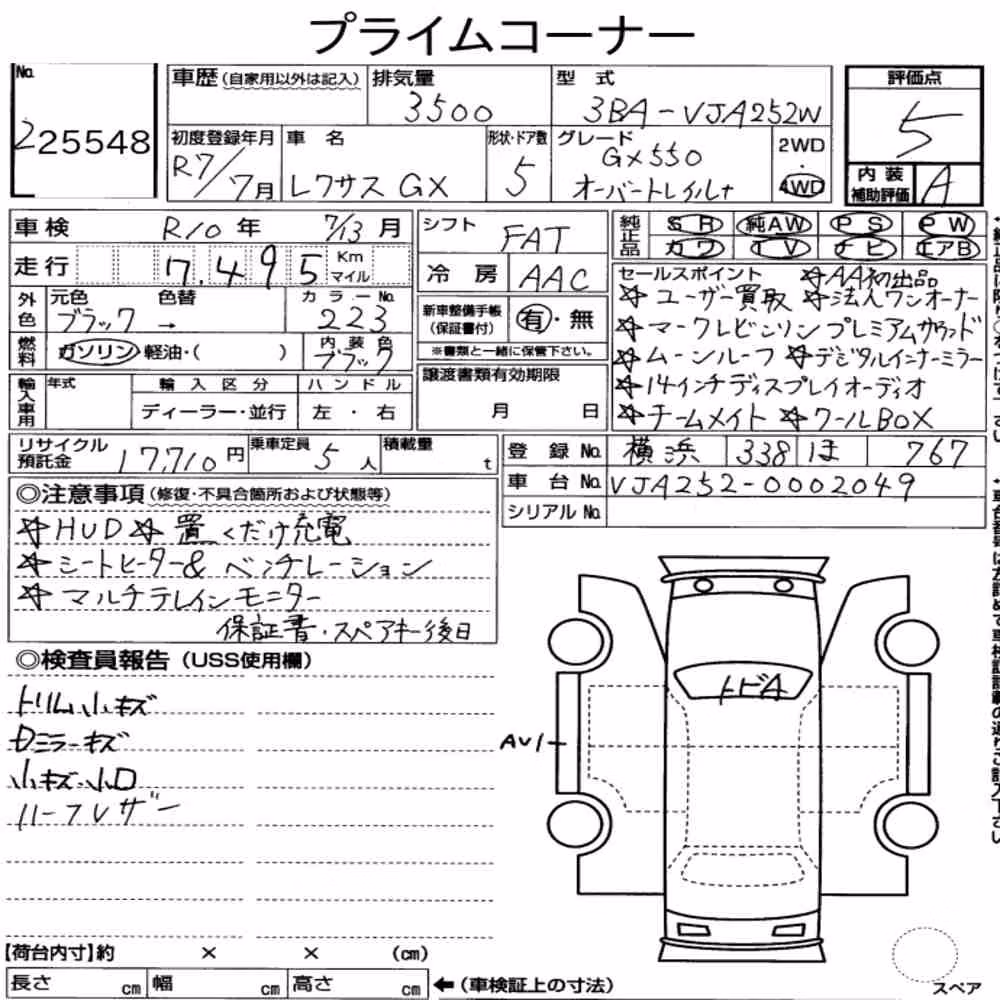 プライムコーナー
No.
225548
車歴(自家用以外は記入)
排気量
3500
型 式
3BA-VJA252W
評価点
5
初度登録年月
R7/7月
車 名
レクサス GX
形状・ドア数
5
グレード
GX550
オーバートレイル+
2WD
4WD
内装
補助評価
A
車検
R10 年 7/13 月
走行
17,495 Km
マイル
シフト
FAT
冷房
AAC
純正品
SR 純AW PS PW
カワ TV ナビ エアB
外色
元色
ブラック
色替
→
カラーNo.
223
内装色
ブラック
燃料
ガソリン・軽油・( )
新車整備手帳
(保証書付)
有・無
※書類と一緒に保管下さい。
セールスポイント ☆AA初出品
☆ユーザー買取 ☆法人ワンオーナー
☆マークレビンソンプレミアムサウンド
☆ムーンルーフ ☆デジタルインナーミラー
☆14インチディスプレイオーディオ
☆チームメイト ☆クールBOX
輸入車用
年式
輸入区分
ディーラー・並行
ハンドル
左・右
譲渡書類有効期限
月 日
リサイクル
預託金
17,710円
乗車定員
5人
積載量
t
登録No.
横浜 338 ほ 767
車台No.
VJA252-0002049
シリアルNo.
◎注意事項(修復・不具合箇所および状態等)
☆HUD ☆置くだけ充電
☆シートヒーター& ベンチレーション
☆マルチテレインモニター
保証書・スペアキー後日
◎検査員報告(USS使用欄)
トリム小キズ
Dミラーキズ
小キズ・小凹
ハーフレザー
トビA
AU1
【荷台内寸】約 × × (cm)
長さ cm 幅 cm 高さ cm
←(車検証上の寸法)
スペア